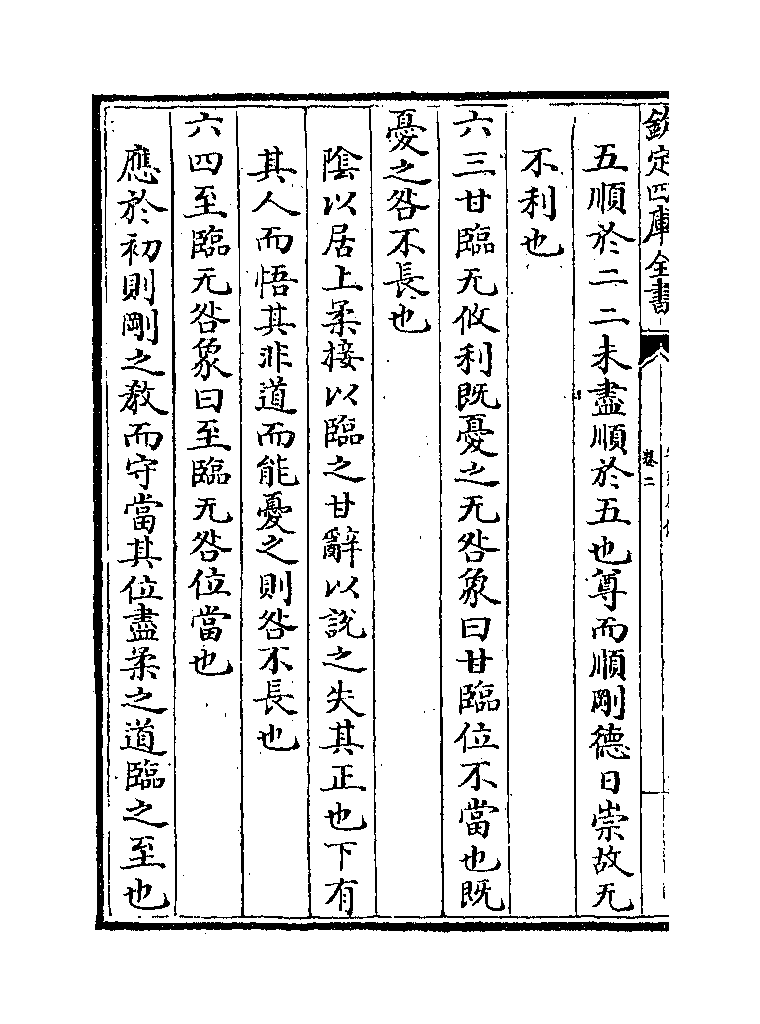 欽定四庫全書
卷二
五順於二二未盡順於五也尊而順剛德日崇故无
不利也
六三甘臨无攸利既憂之无咎象曰甘臨位不當也既
憂之咎不長也
陰以居上柔接以臨之甘辭以說之失其正也下有
其人而悟其非道而能憂之則咎不長也
六四至臨无咎象曰至臨无咎位當也
應於初則剛之教而守當其位盡柔之道臨之至也